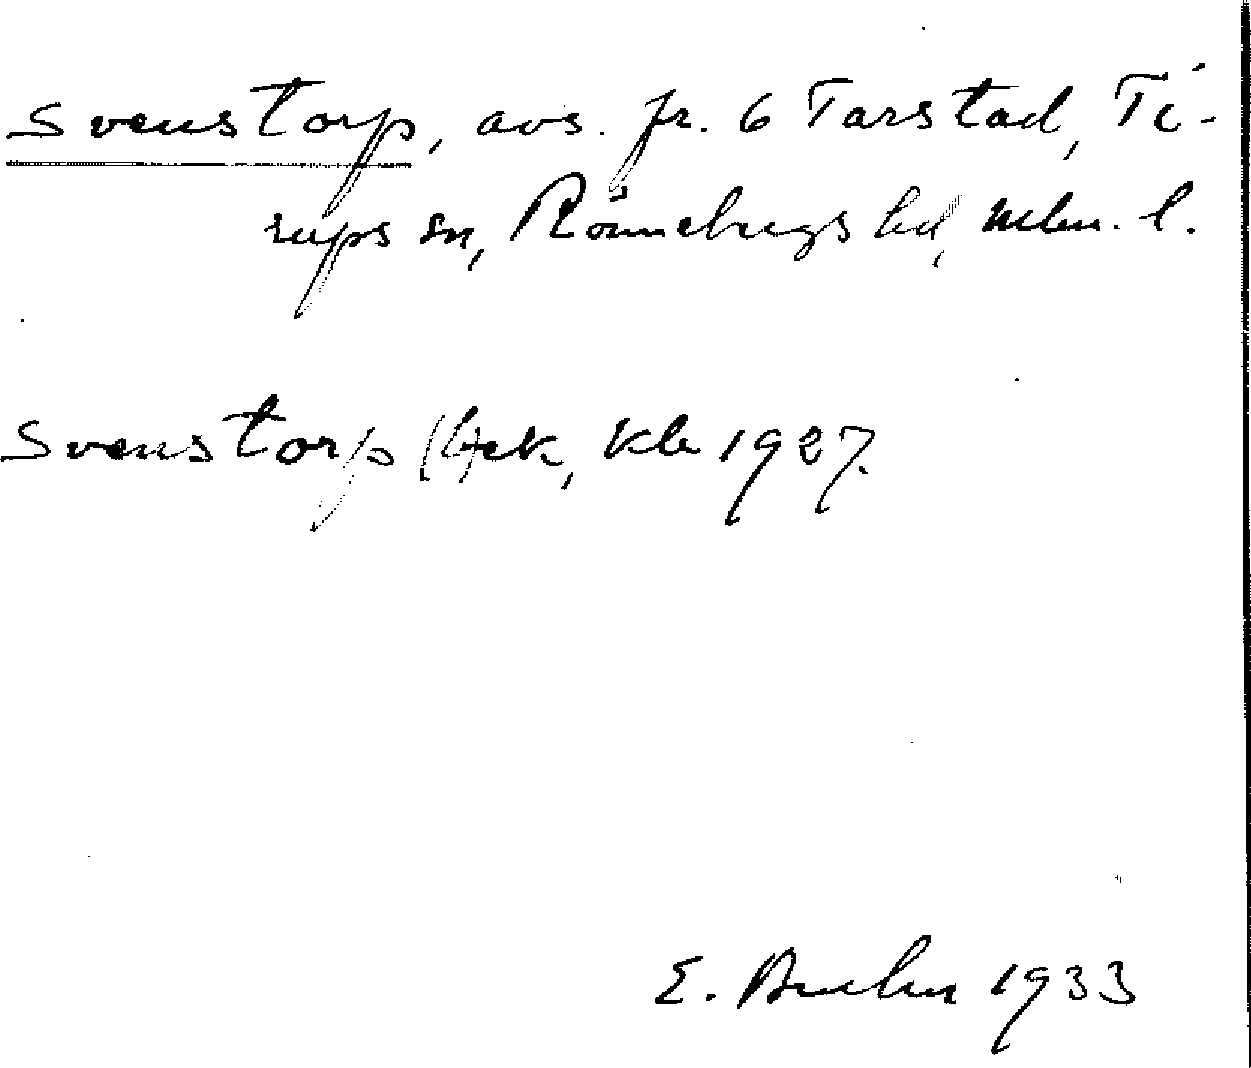 Svenstorp, avs. fr. 6 Tarstad, Ti-
rups sn, Rönnebergs hd, Mlm. l.
Svenstorp (4) ek, Kb 1927.
E. 1933